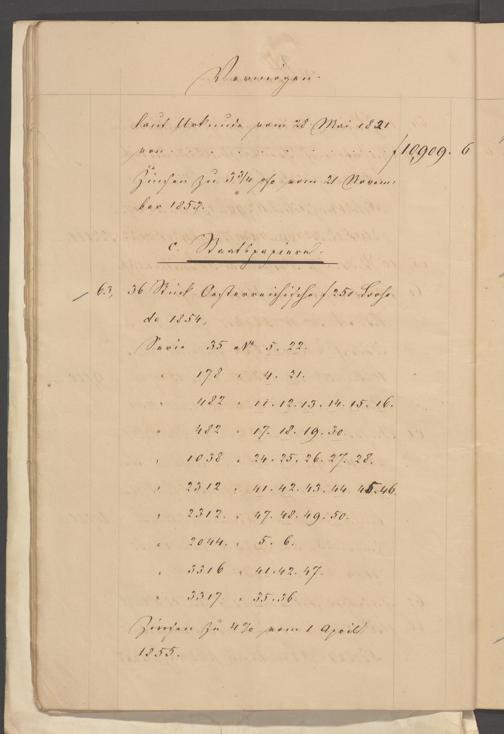 Vermögen.
laut Urkunde vom 28 Mai 1821
von . . . . . . . . f 10,909. 6
Zinsen zu 3 3/4 pCo vom 21 Novem-
ber 1853.
c. Staatspapiere.
63, 36 Stück Oesterreichische f 250 Loose
de 1854.
Serie 35 No 5. 22.
" 178 " 4. 21.
" 482 " 11. 12. 13. 14. 15. 16.
" 482 " 17. 18. 19. 30.
" 1038 " 24. 25. 26. 27. 28.
" 2312 " 41. 42. 43. 44. 45. 46.
" 2312. " 47. 48. 49. 50.
" 2044. " 5. 6.
" 3316 " 41. 42. 47.
" 3317 " 35. 36.
Zinsen zu 4% vom 1 April
1855.